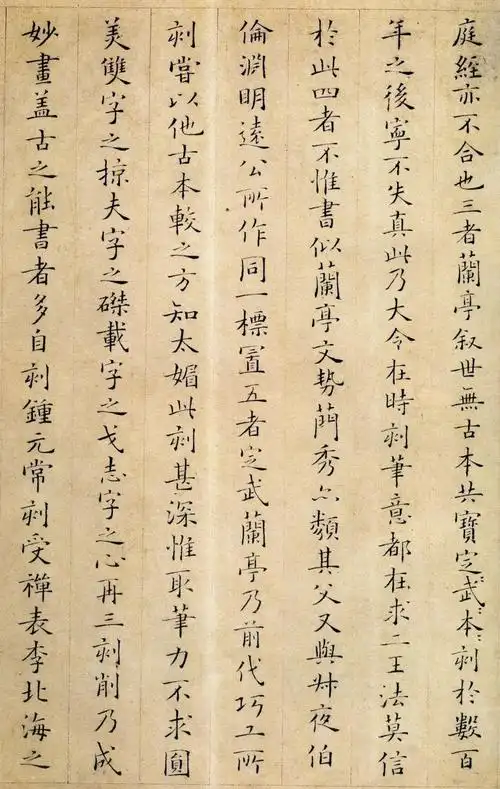 庭經亦不合也三者蘭亭叙世無古本共寶定武〻本〻刻於數百
年之後寧不失真此乃大令在時刻筆意都在求二王法莫信
於此四者不惟書似蘭亭文勢簡秀亦類其父又與叔夜伯
倫淵明遠公所作同一標置五者定武蘭亭乃前代巧工所
刻嘗以他古本較之方知太媚此刻甚深惟取筆力不求圓
美雙字之掠夫字之磔載字之戈志字之心再三刻削乃成
妙畫盖古之能書者多自刻鍾元常刻受禪表李北海之